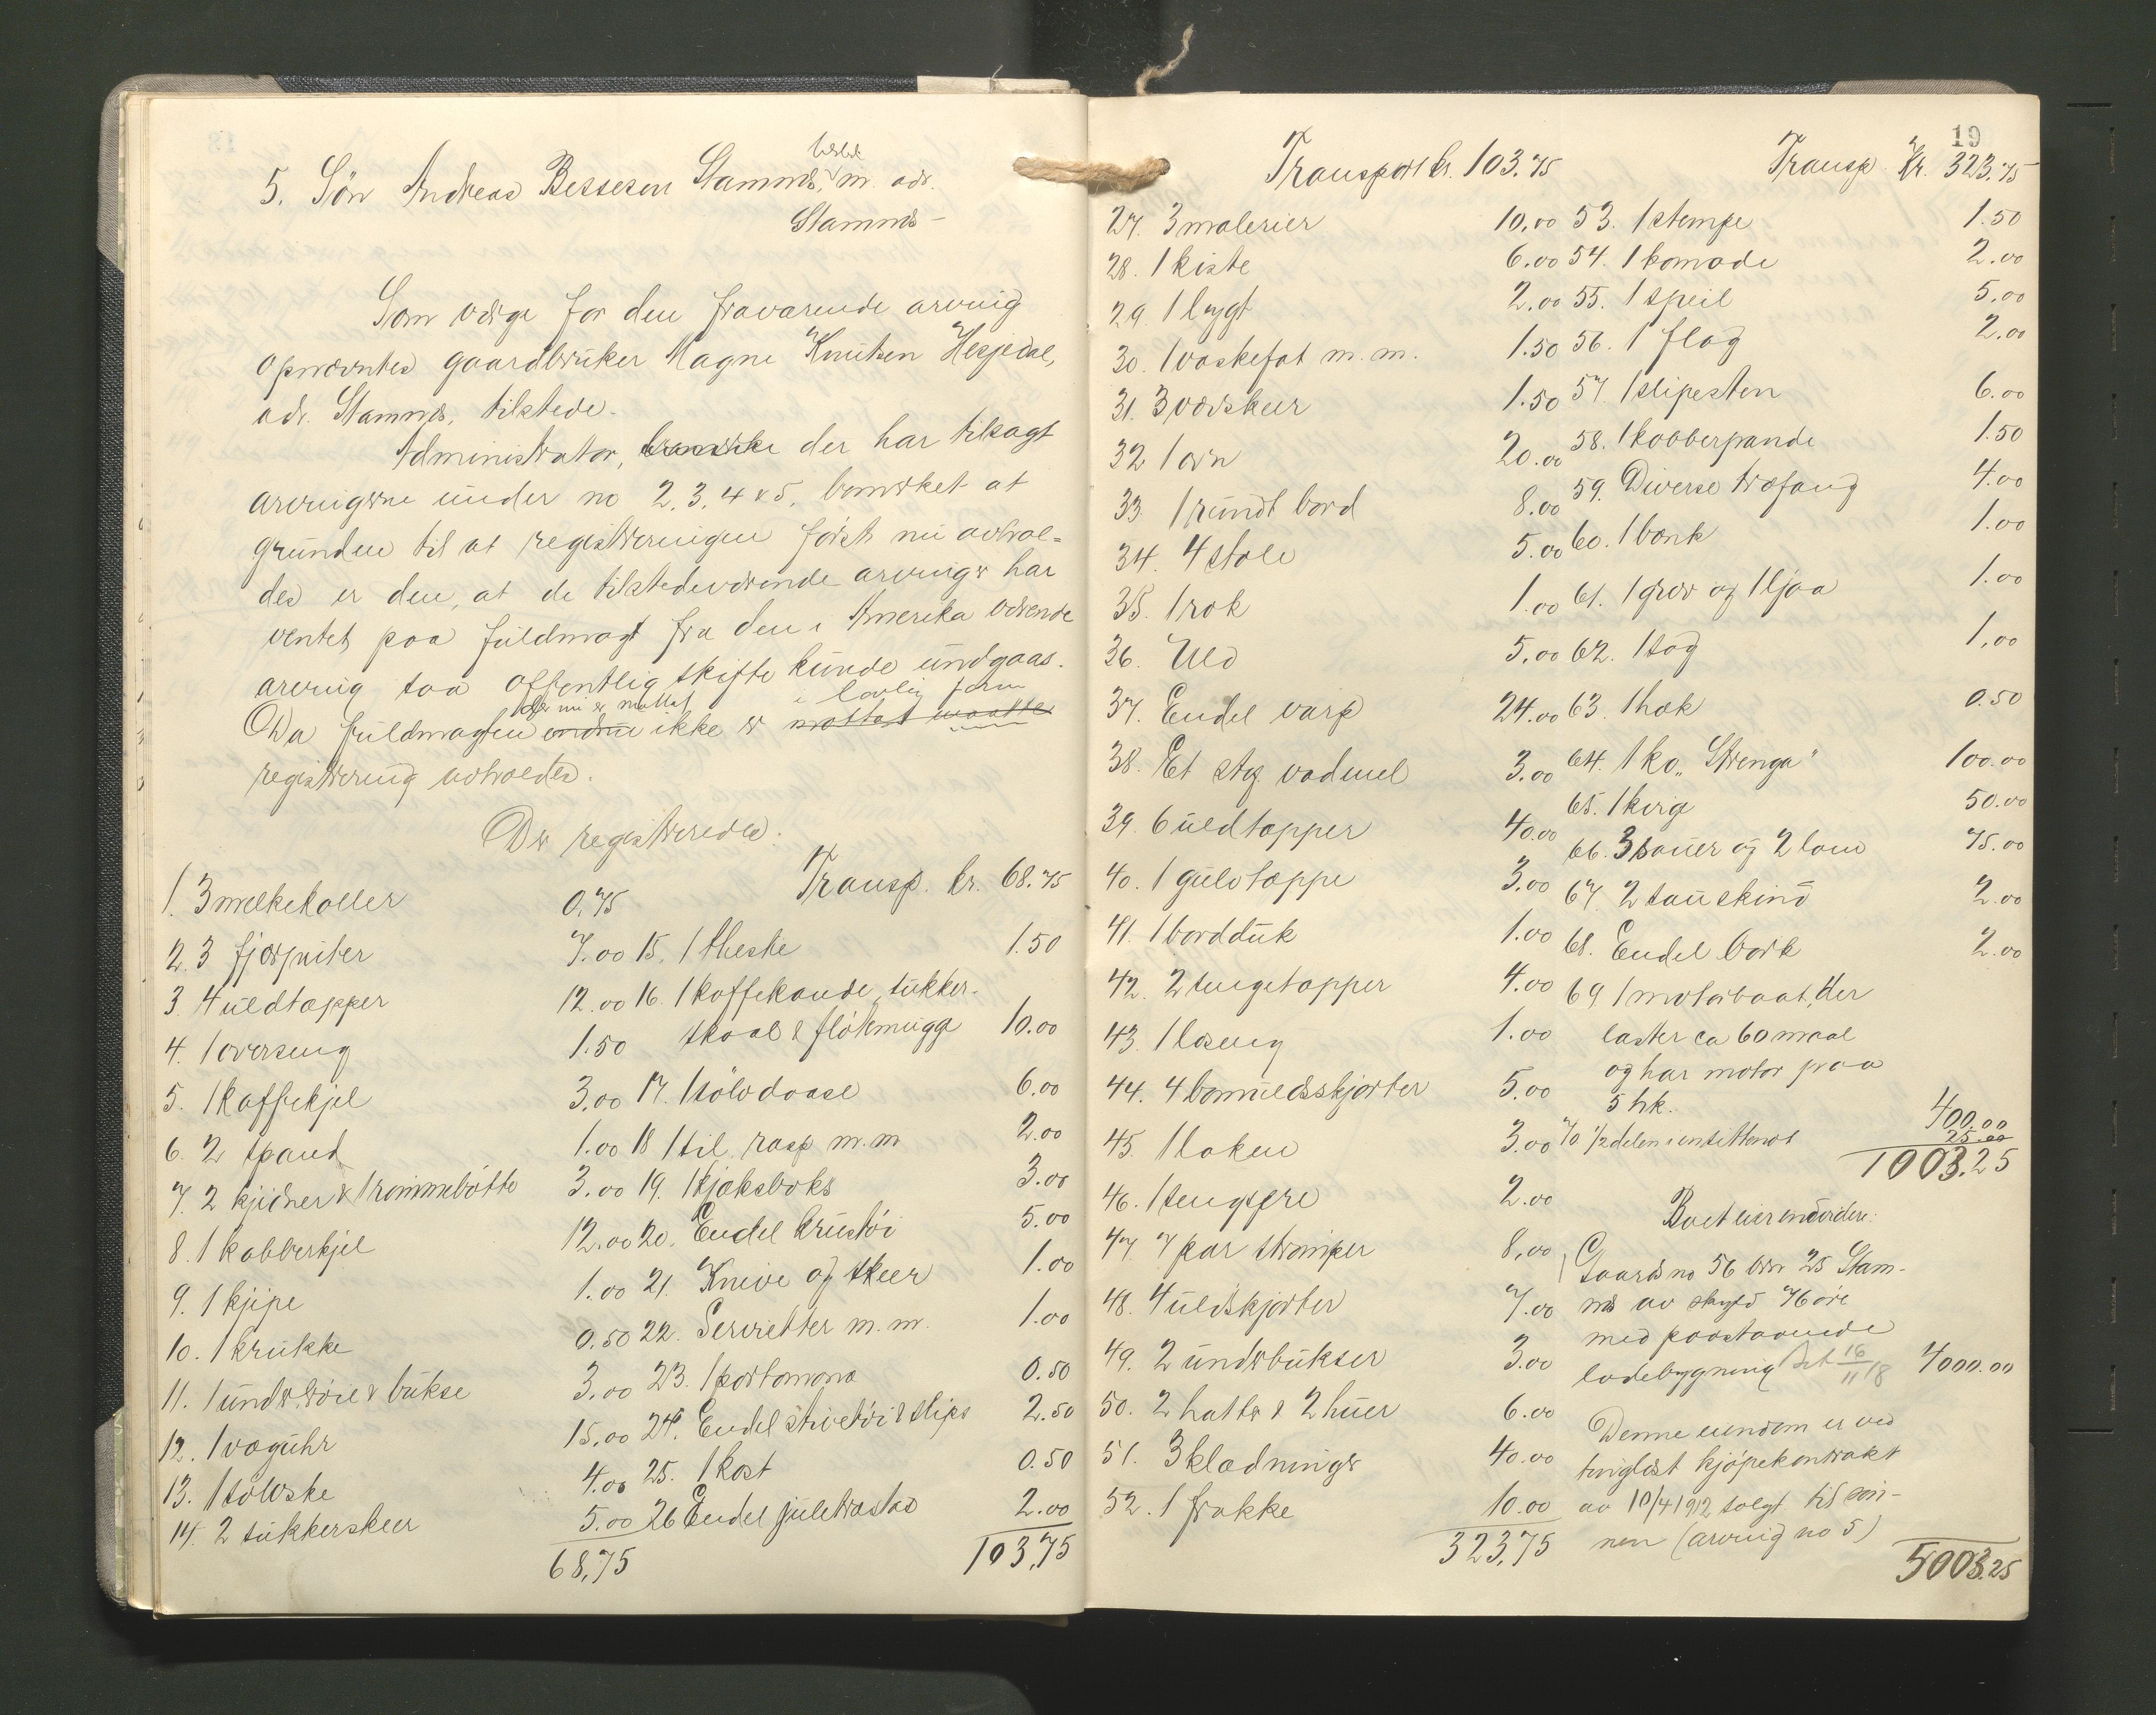 5. Søn Andreas Bessesen Stamnes, m. adr.
Stamnes -
Som verge for den fraværende arving
opnævntes gaardbruker Magne Knutsen Hesjedal,
adr. Stamnes, tilstede.
Administrator, der har tilsagt
arvingerne under no 2, 3, 4 & 5, bemerket at
grunden til at registreringen først nu avhol-
des er den, at de tilstedeværende arvinger har
ventet paa fuldmagt fra den i Amerika værende
arving saa offentlig skifte kunde undgaaes.
der nu er mottat i lovlig form
Da fuldmagten endnu ikke er mottat maatte
registrering avholdes.
Der registreredes:
1. 3 melkekoller 0,75
2. 3 fjærputer 7.00
3. 4 uldtæpper 12.00
4. 1 overseng 1.50
5. 1 kaffekjel 3.00
6. 2 spand 1.00
7. 2 kjidner & 1 rømmebøtte 3.00
8. 1 kobberkjel 12.00
9. 1 kjipe 1.00
10. 1 krukke 0.50
11. 1 undertrøie & bukse 3.00
12. 1 væguhr 15.00
13. 1 sølvske 4.00
14. 2 sukkerskeer 5.00
68,75
Transp. kr. 68.75
15. 1 theske 1.50
16. 1 kaffekande, sukker-
skaal & fløtemugge 10.00
17. 1 sølvdaase 6.00
18 1 sil, rasp m.m 2.00
19. 1 kjæksboks 3.00
20. Endel krustøi 5.00
21. Knive og skeer 1.00
22. Servietter m.m. 1.00
23. 1 portomona 0.50
24. Endel stivetøi & slips 2.50
25. 1 kost 0.50
26 Endel juletræstas 2.00
103,75
19
Transport kr. 103.75
27. 3 malerier 10,00
28. 1 kiste 6.00
29. 1 lygt 2.00
30. 1 vaskefat m.m. 1.50
31. 3 værskeer 1.50
32 1 ovn 20.00
33 1 rundt bord 8.00
34. 4 stole 5.00
35. 1 rok 1.00
36. Uld 5.00
37. Endel varp 24.00
38. Et stg vadmel 3.00
39. 6 uldtæpper 40.00
40. 1 gulvtæppe 3.00
41. 1 bordduk 1.00
42. 2 sengetæpper 4.00
43. 1 løseng 1.00
44. 4 bomuldsskjorter 5.00
45. 1 laken 3.00
46. 1 sengsfre 2.00
47 7 par strømper 8,00
48. 4 uldskjorter 7.00
49. 2 underbukser 3.00
50. 2 hatter & 2 huer 6.00
51. 3 klædninger 40.00
52. 1 frakke 10.00
323,75
Transp. Kr. 323.75
53. 1 stempe 1.50
54. 1 komode 2.00
55. 1 speil 5,00
56. 1 flag 2.00
57 1 slipesten 6.00
58. 1 kobberpande 1.50
59. Diverse træfang 4.00
60. 1 bænk 1.00
61. 1 grev og 1 ljaa 1.00
62. 1 sag 1,00
63. 1 hak 0.50
64. 1 ko „Strenga" 100.00
65. 1 kvige 50.00
66. 3 sauer og 2 lam 75.00
67. 2 sauskind 2.00
68. Endel bark 2.00
69 1 motorbaat, der
laster ca 60 maal
og har motor paa
5 hk. 400.00
70 1/2 delen i en sittenot 25.00
1003.25
Boet eier endvidere:
Gaards no 56 brn 25 Stam-
nes av skyld 76 øre
med paastaaende
ladebygning Set 16/11 18 4000.00
Denne eiendom er ved
tinglæst kjøpekontrakt
av 10/4 1912 solgt til søn-
nen (arving no 5)
5003.25